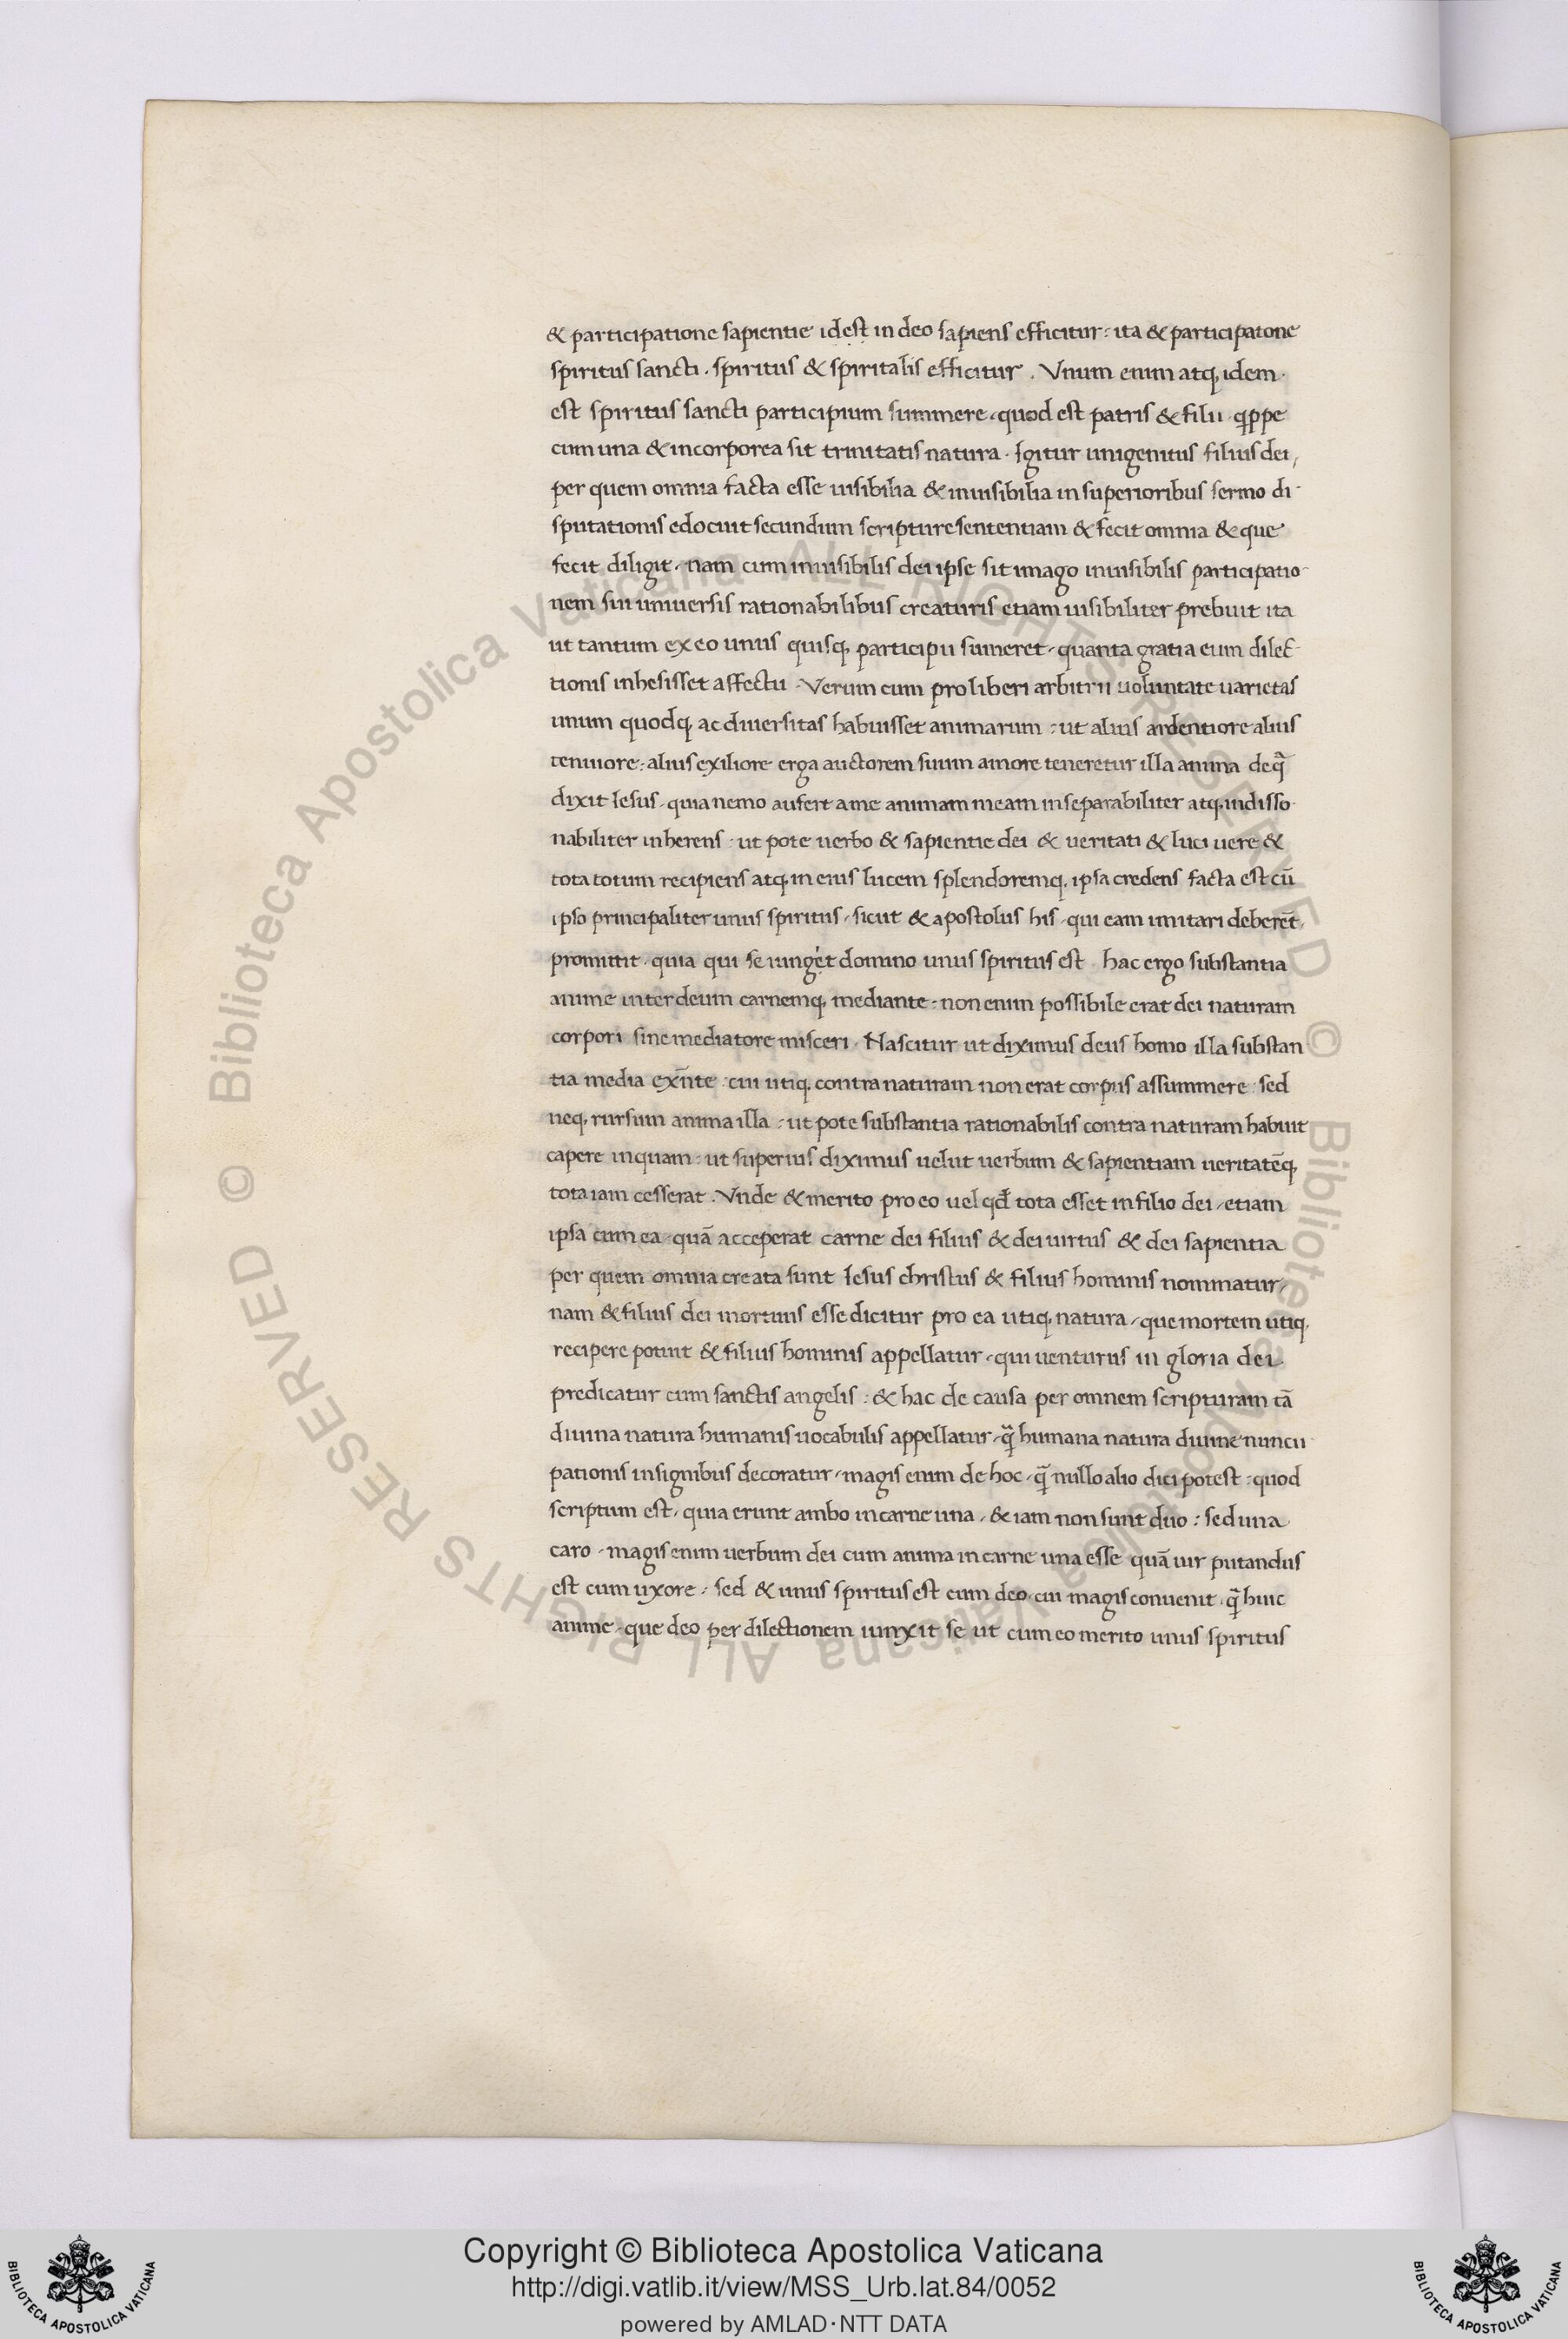 & participatione sapientie idest in deo sapiens efficitur: ita & participatone
spiritus sancti. spiritus & spiritalis efficitur. Vnum enim atq, idem
est spiritus sancti participium summere, quod est patris & filii qppe
cum una & incorporea sit trinitatis natura. Igitur unigenitus filius dei,
per quem omnia facta esse uisibilia & inuisibilia in superioribus sermo di-
sputationis edocuit secundum scripture sententiam & fecit omnia & que
fecit diligit, nam cum inuisibilis dei ipse sit imago inuisibilis participatio-
nem sui uniuersis rationabilibus creaturis etiam uisibiliter prebuit ita
ut tantum ex eo unus quisq, participii sumeret, quanta gratia eum dilec-
tionis inhesisset affectu. Verum cum pro liberi arbitrii uoluntate uarietas
unum quodq, ac diuersitas habuisset animarum: ut alius ardentiore alius
tenuiore: alius exiliore erga auctorem suum amore teneretur illa anima de q̃
dixit Iesus, quia nemo aufert a me animam meam inseparabiliter atq, indisso-
nabiliter inherens: ut pote uerbo & sapientie dei & ueritati & luci uere &
tota totum recipiens atq, in eius lucem splendoremq, ipsa credens facta est cū
ipso principaliter unus spiritus, sicut & apostolus his, qui eam imitari deberēt,
promittit. quia qui se iunget domino unus spiritus est. hac ergo substantia
anime inter deum carnemq, mediante: non enim possibile erat dei naturam
corpori sine mediatore misceri. Nascitur ut diximus deus homo illa substan
tia media exñte: cui utiq, contra naturam non erat corpus assummere: sed
neq, rursum anima illa: ut pote substantia rationabilis contra naturam habuit
capere inquam: ut superius diximus uelut uerbum & sapientiam ueritatēq,
tota iam cesserat. Vnde & merito pro eo uel qđ tota esset in filio dei, etiam
ipsa cum ea, quā acceperat carne dei filius & dei uirtus & dei sapientia
per quem omnia creata sunt Iesus christus & filius hominis nominatur,
nam & filius dei mortuus esse dicitur pro ea utiq, natura, que mortem utiq,
recipere potuit & filius hominis appellatur, qui uenturus in gloria dei
predicatur cum sanctis angelis: & hac de causa per omnem scripturam tā
diuina natura humanis uocabulis appellatur, q̃ humana natura diuine nuncu
pationis insignibus decoratur, magis enim de hoc, q̃ nullo alio dici potest: quod
scriptum est, quia erunt ambo in carne una, & iam non sunt duo: sed una
caro, magis enim uerbum dei cum anima in carne una esse quā uir putandus
est cum uxore: sed & unus spiritus est cum deo. cui magis conuenit, q̃ huic
anime, que deo per dilectionem iunxit se ut cum eo merito unus spiritus
© Biblioteca Apostolica Vaticana ALL RIGHTS RESERVED
© Biblioteca Apostolica Vaticana ALL RIGHTS RESERVED
Copyright © Biblioteca Apostolica Vaticana
http://digi.vatlib.it/view/MSS_Urb.lat.84/0052
powered by AMLAD·NTT DATA
BIBLIOTECA APOSTOLICA VATICANA
BIBLIOTECA APOSTOLICA VATICANA